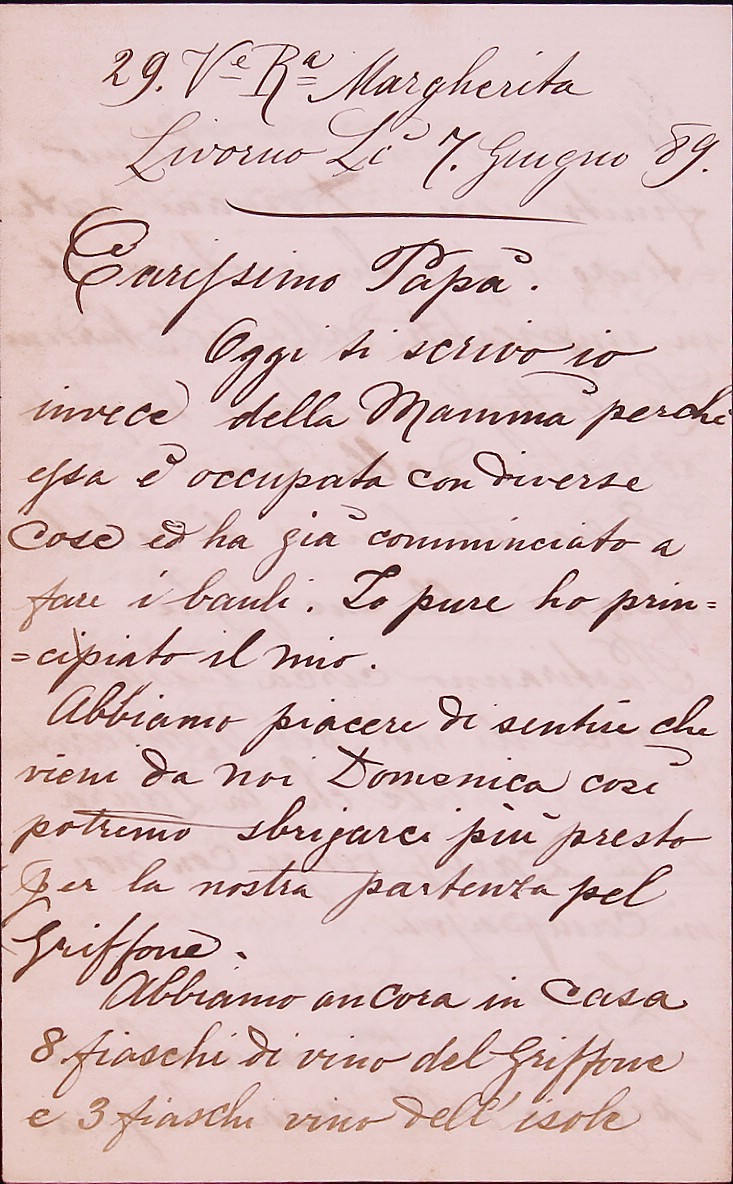 29. Vᵉ Rᵃ Margherita
Livorno Lì 7. Giugno 89.
Carissimo Papà.
Oggi ti scrivo io
invece della Mamma perchè
essa è occupata con diverse
cose ed ha già comminciato a
fare i bauli. Io pure ho prin=
=cipiato il mio.
Abbiamo piacere di sentire che
vieni da noi Domenica così
potremo sbrigarci più presto
per la nostra partenza pel
Griffone.
Abbiamo ancora in casa
8 fiaschi di vino del Griffone
e 3 fiaschi vino dell' isole